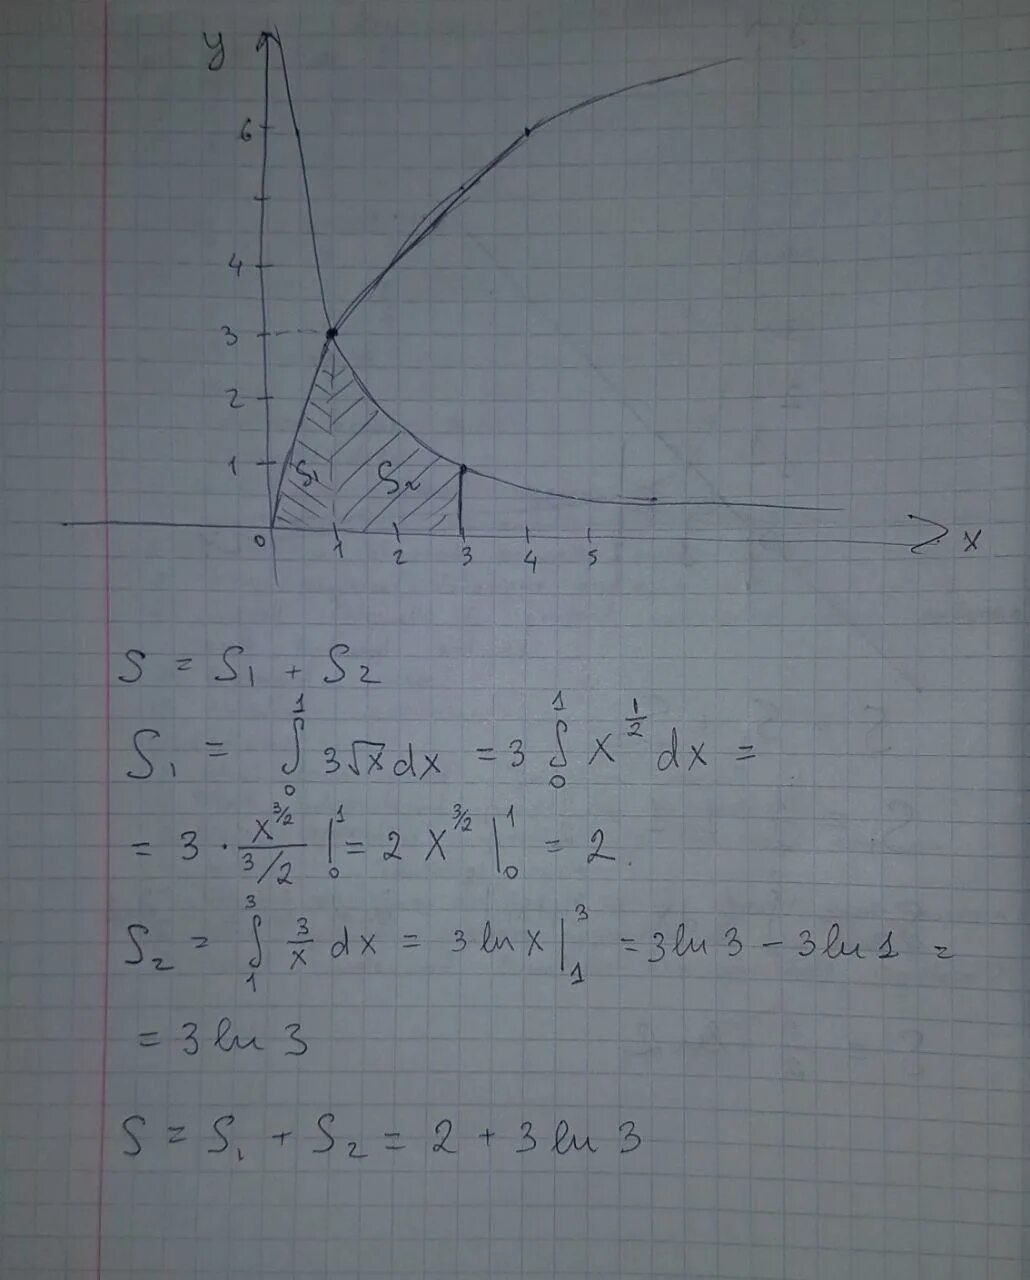 y
6
4
3
2
1
S₁ S₂
0 1 2 3 4 5 x
S = S₁ + S₂
S₁ = ∫₀¹ 3√x dx = 3 ∫₀¹ x^(1/2) dx =
= 3 · x^(3/2) / (3/2) |₀¹ = 2 x^(3/2) |₀¹ = 2
S₂ = ∫₁³ 3/x dx = 3 ln x |₁³ = 3 ln 3 − 3 ln 1 =
= 3 ln 3
S = S₁ + S₂ = 2 + 3 ln 3